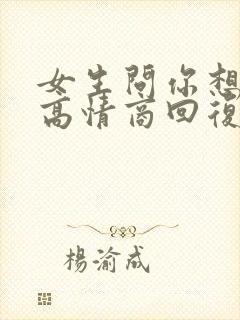 女生問你想
高情商回復
楊渝成